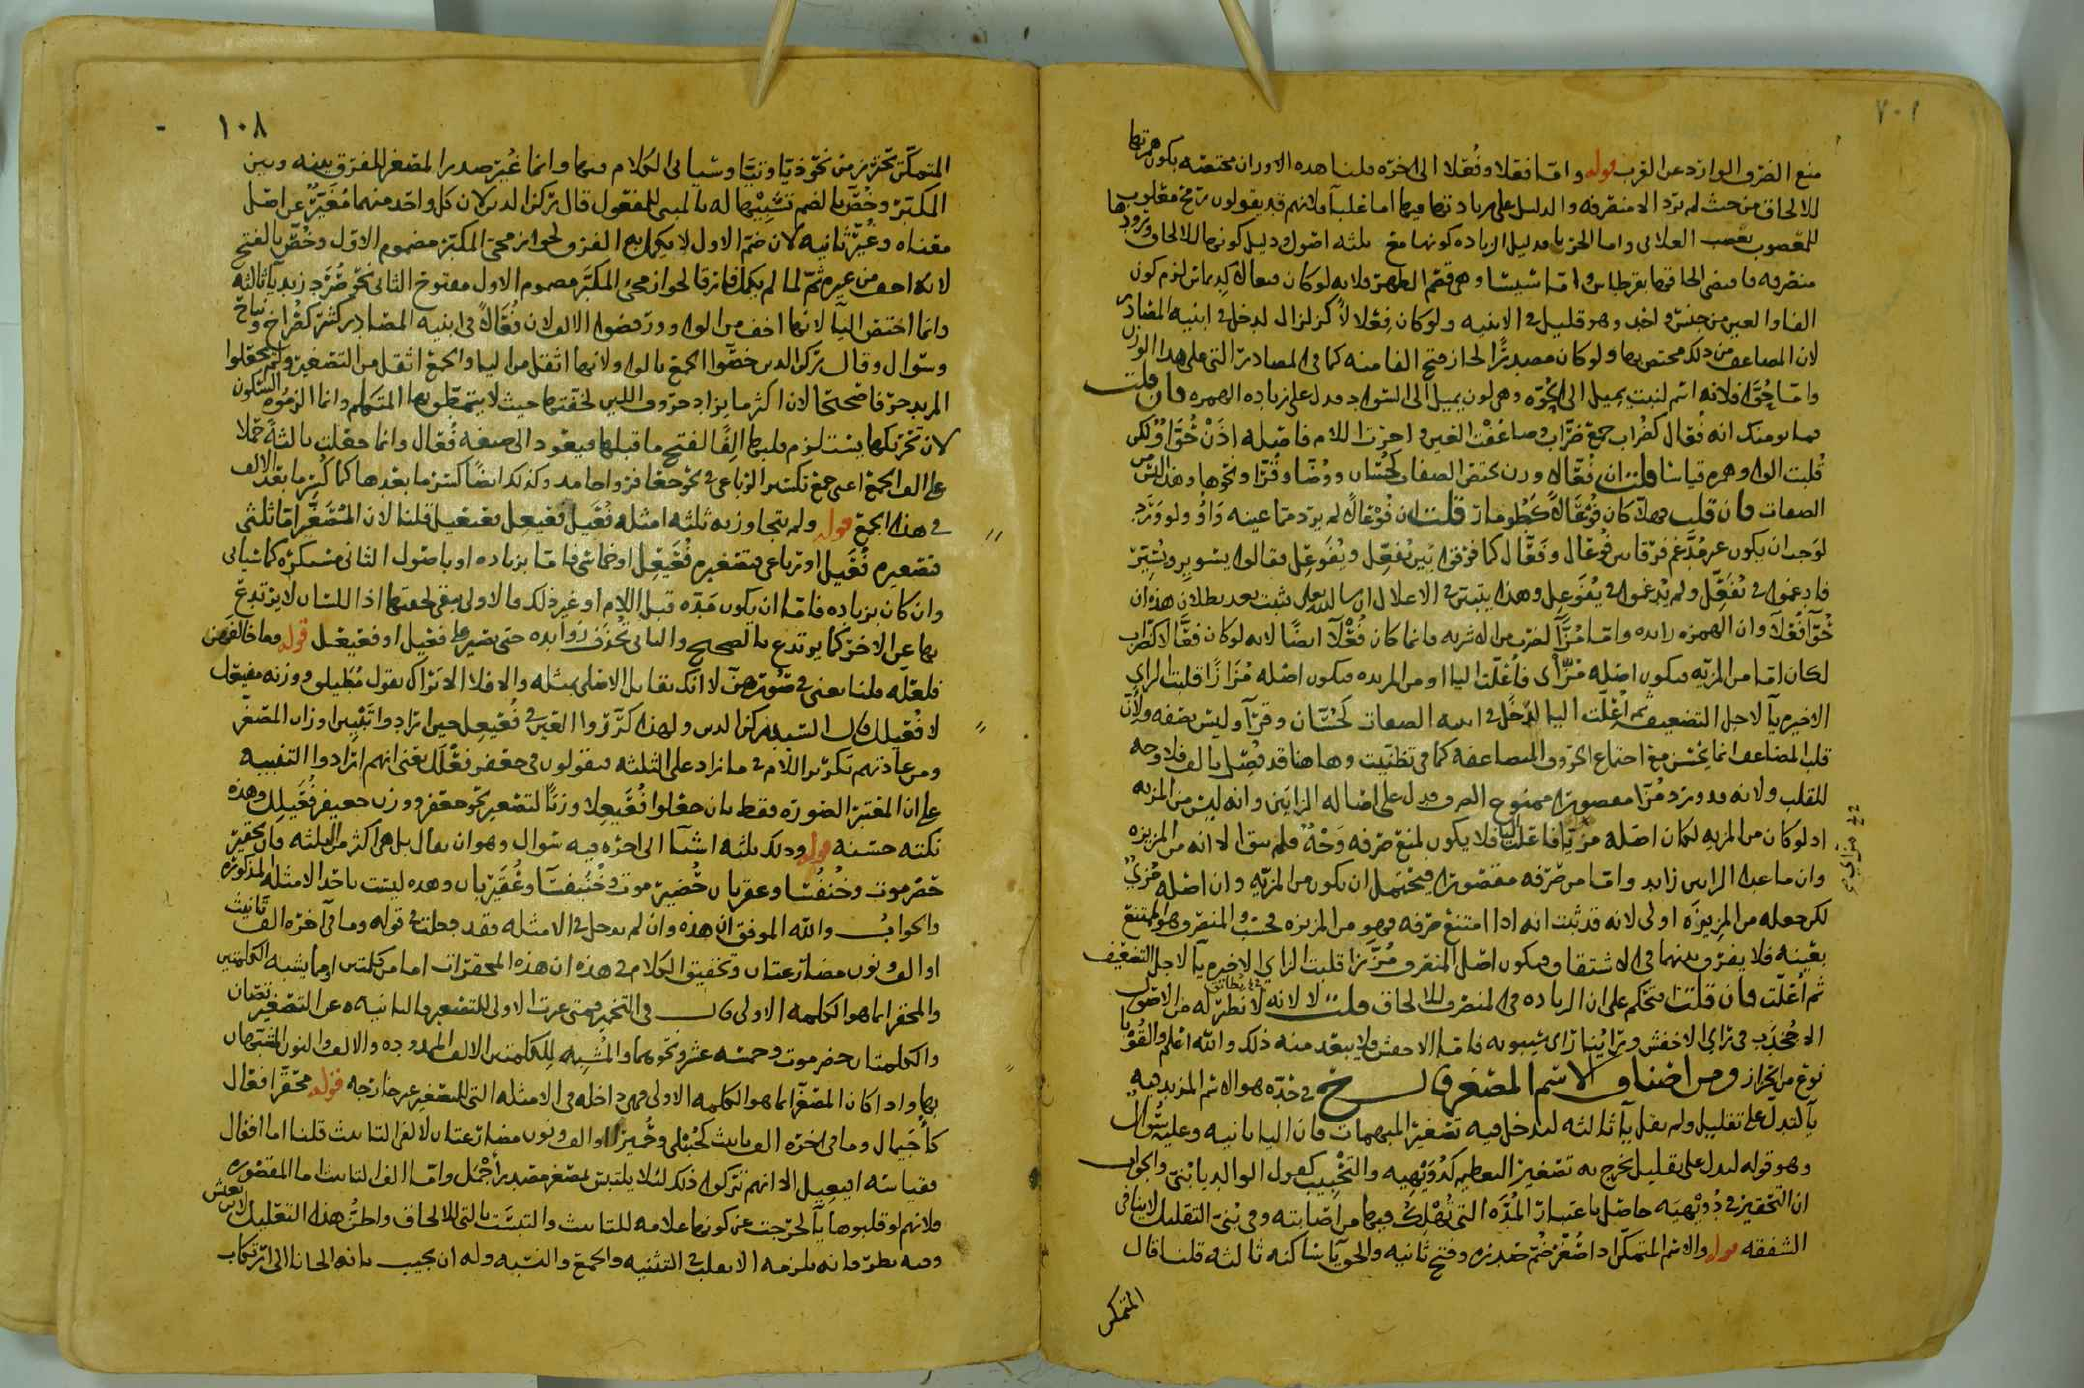 ١٠٧
منع الصرف الوارد عن العرب قوله واما فعلا وفُعلا الى اخره قلنا هذه الاوزان مختصه بكون همزتها
للالحاق من حيث لم يرد الا منصرفه والدليل على زيادتها فيها اما علبآ فلانهم قد يقولون رمح معلوب
للمعصوب بعصب العلابى واما الحزبا فدليل الزياده كونها مع ثلثه اصول ودليل كونها للالحاق ورودها
منصرفه فاقتضى الحاقها بقرطاس واما شيشا وهى فقم الظهر فلانه لو كان فيعالا كديماس لزم كون
الفا والعين من جنس واحد وهو قليل فى الابنيه ولو كان فِعلالاً كزلزال لدخل فى ابنيه المصادر
لان المضاعف من ذلك مختص بها ولو كان مصدرًا لجاز فتح الفا منه كما فى المصادر التى على هذا الوزن
واما حُوّآ فلانه اسم لنبت يميل الى الحُوّه وهى لون يميل الى السواد فدل على زياده الهمزه فان قلت
فما يومنك انه فُعّال كضُرّاب جمع ضرّاب وضاعفت العين واحرت اللام فاصله اذن حُوّاوٌ لكن
قُلبت الواو همزه قياسا قلت ان فُعّالا وزن يختص الصفات كحُسّان ووُضّا وقُرّا ونحوها وهذا ليس من
الصفات فان قلت فهلا كان فُوعالاً كطُومار قلت ان فُوعالاً لم يرد مما عينه واوٌ ولو ورد
لوجب ان يكون غير مُدغم فرقا بين فُوعال وفعّال كما فرقوا بين فُعّل وفُوعِل فقالوا سُوير وسُيّر
فادغموا فى فُعّل ولم يدغموا فى فُوعل وهذا يتبين فى الاعلال ان شا الله تعالى ثبت بعد بطلان هذه ان
حُوّآ فُعْلآ وان الهمزه زايده واما مُزّآ لضرب من الاشربه فانما كان فُعْلآ ايضًا لانه لو كان فعّالا كضرّاب
لكان اما من المزيه فيكون اصله مُزّاى فاُعلّت اليا او من المزيده فيكون اصله مُزّازًا قلبت الزاى
الاخيره يآ لاجل التضعيف ثم اُعلّت اليا لدخل فى ابنيه الصفات كحُسّان وقُرّآ وليس بصفه ولان
قلب المضاعف انما يحسن مع اجتماع الحروف المضاعفه كما فى تظنيت وها هنا قد فُصل بالف فلا وجه
للقلب ولانه قد ورد مُزّا مقصورة ممنوع الصرف فدل على اصاله الزايين وانه ليس من المزيه
اذ لو كان من المزيه لكان اصله مزّيا فاعلّت اليا فلا يكون لمنع صرفه وجْهٌ فلم يبق الا انه من المزيزه
وان ما عدا الزايين زايد واما من صرفه مقصورة فيحتمل ان يكون من المزيّه وان اصله مُزّىٌ
لكن جعله من المزيزه اولى لانه قد ثبت انه اذا امتنع صرفه فهو من المزيزه فحسب والمنصرف هو الممتنع
بعينه فلا يفرق بينهما فى الاشتقاق فيكون اصل المنصرف مُزّززا قلبت الزاى الاخيره يآ لاجل التضعيف
ثم اُعلّت فان قلت فتحكم على ان الزياده فى المنصرف للالحاق قلت لا لانه لا نظير له من الاصول
الا جُخدَب فى راى الاخفش وراينا راى سيبويه فاما الاخفش فلا يبعد منه ذلك والله اعلم والقوبا
نوع من الحزاز ومن اصناف الاسم المصغر قال الشيخ فى حدّه هو الاسم المزيد فيه
يآ لتدل على تقليل ولم يقل يآ ثالثه ليدخل فيه تصغير المبهمات فان اليا ثانيه وعليه سُوال
وهو قوله ليدل على تقليل يخرج به تصغير التعظيم كدُوَيهيه والتحبيب كقول الوالد يا بُنىّ والجواب
ان التحقير فى دُويهيه حاصل باعتبار المُدّه التى تُهلِك فيها من اصابته وفى بُنىّ التقليل لاينافى
الشفقه قوله والاسم المتمكن اذا صُغّر ضُم صدره وفتح ثانيه والحق يآ ساكنه ثالثه قلنا قال
المتمكن
١٠٨
المتمكّن تحرّز من نحو ذيّا وتيّا وسياتى الكلام فيها وانما غُير صدر المصغر للفرق بينه وبين
المكبّر وخُصّ بالضم تشبيهًا له بالمبنى للمفعول قال ركن الدين لان كل واحد منهما مُغيّر عن اصل
معناه وغُير ثانيه لان ضم الاول لا يكمل به الفرق لجواز مجى المكبر مضموم الاول وخُصّ بالفتح
لانه اخف من غيره ثم لما لم يكمل فارقا لجواز مجى المكبّر مضموم الاول مفتوح الثانى نحو صُرَد زيد يآ ثالثه
وانما اختص اليآ لانها اخف من الواو ورفضوا الالف لان فُعالاً فى ابنيه المصادر كثير كصُراخ ونباح
وسُوال وقال ركن الدين خصّوا الجمع بالواو ولانها اثقل من اليا والجمع اثقل من التصغير ولم يجعلوا
المزيد حرفا صحيحًا لان اكثر ما يزاد حروف اللين لخفتها حيث لا يتفطن بها المتكلم وانما الزموه السكون
لان تحريكها يستلزم قلبها الفًا لفتح ما قبلها فيعود الى صيغه فُعال وانما جعلت ثالثه حملا
على الف الجمع اعنى جمع تكسير الرباعى فى نحو جعافر واحامد وكذلك ايضًا كسر ما بعدها كما كُسر ما بعد الالف
فى هذا الجمع قوله ولم يتجاوز به ثلثه امثله فُعيل فُعيعِل فعيعيل قلنا لان المصغّر اما ثلثى
فتصغيره فُعَيل او رباعى فتصغيره فُعَيعِل او خماسى فاما بزياده او باصول الثانى مستكره كما سياتى
وان كان بزياده فاما ان يكون مدّه قبل اللام او غير ذلك فالاولى يبقى لخفتها اذ اللسان لا يرتدع
بها عن الاخر كما يرتدع بالصحيح والثانى تُحذف زوايده حتى يصير على فعيل او فعيعل قوله وما خالفهن
فلعلّه قلنا يعنى فى صُورهن لا انك تقابل الاصلى بمثله والا فلا الا تراك تقول مُطيلق ووزنه مفيعل
لا فُعيلل قال السيد ركن الدين ولهذا كرّروا العين فى فُعيعل حين ارادوا تبيين اوزان المصغر
ومن عادتهم تكرير اللام فى ما زاد على الثلثه فيقولون فى جعفر فعلل يعنى انهم ارادوا التنبيه
على ان المعتبر الصوره فقط بان جعلوا فُعيعِلا وزنًا لتصغير نحو جعفر ووزن جعيفر فُعَيلِل وهذه
نكته حسنه قوله وذلك ثلثه اشيا الى اخره فيه سُوال وهو ان يقال بل هى اكثر من الثلثه فان تحقير
حضرموت وخُنفُسا وعقربان حُضَيرموت وخُنيفسا وعُقيربان وهذه ليست باحد الامثله المذكوره
والجوابُ والله الموفق ان هذه وان لم يدخل فى الامثله فقد دخلت فى قوله وما فى آخره الف تانيث
او الف ونون مضارعتان وتحقيق الكلام فى هذه ان هذه المحقرات اما من كلمتين او ما يشبه الكلمتين
والمحقر انما هو الكلمه الاولى قال فى التخمير فمتى عرت الاولى للتصغير فالثانيه عن التصغير تصان
والكلمتان حضرموت وخمسه عشر ونحوهما والمُشبه للكلمتين الالف الممدوده والالف والنون المشبهان
بها واذا كان المصغّر انما هو الكلمه الاولى فهى داخله فى الامثله التى للتصغير غير خارجه قوله محقرًا فعال
كاُجَيمال وما فى اخره الف تانيث كحُبَيلى وحُميرا او الف ونون مضارعتان لالفى التانيث قلنا اما افعال
فقياسه افيعيل الا انهم تركوا ذلك لئلا يلتبس بمصغر مصدر اَجْمَل واما الف التانيث اما المقصوره
فلانهم لو قلبوها يآ لخرجت عن كونها علامه للتانيث والتبست بالتى للالحاق واطرد هذا التعليل لابن يعيش
وفيه نظر فانه يلزمه الا يقلب فى التثنيه والجمع والنسبه وله ان يجيب بانه الجانا الى ارتكاب